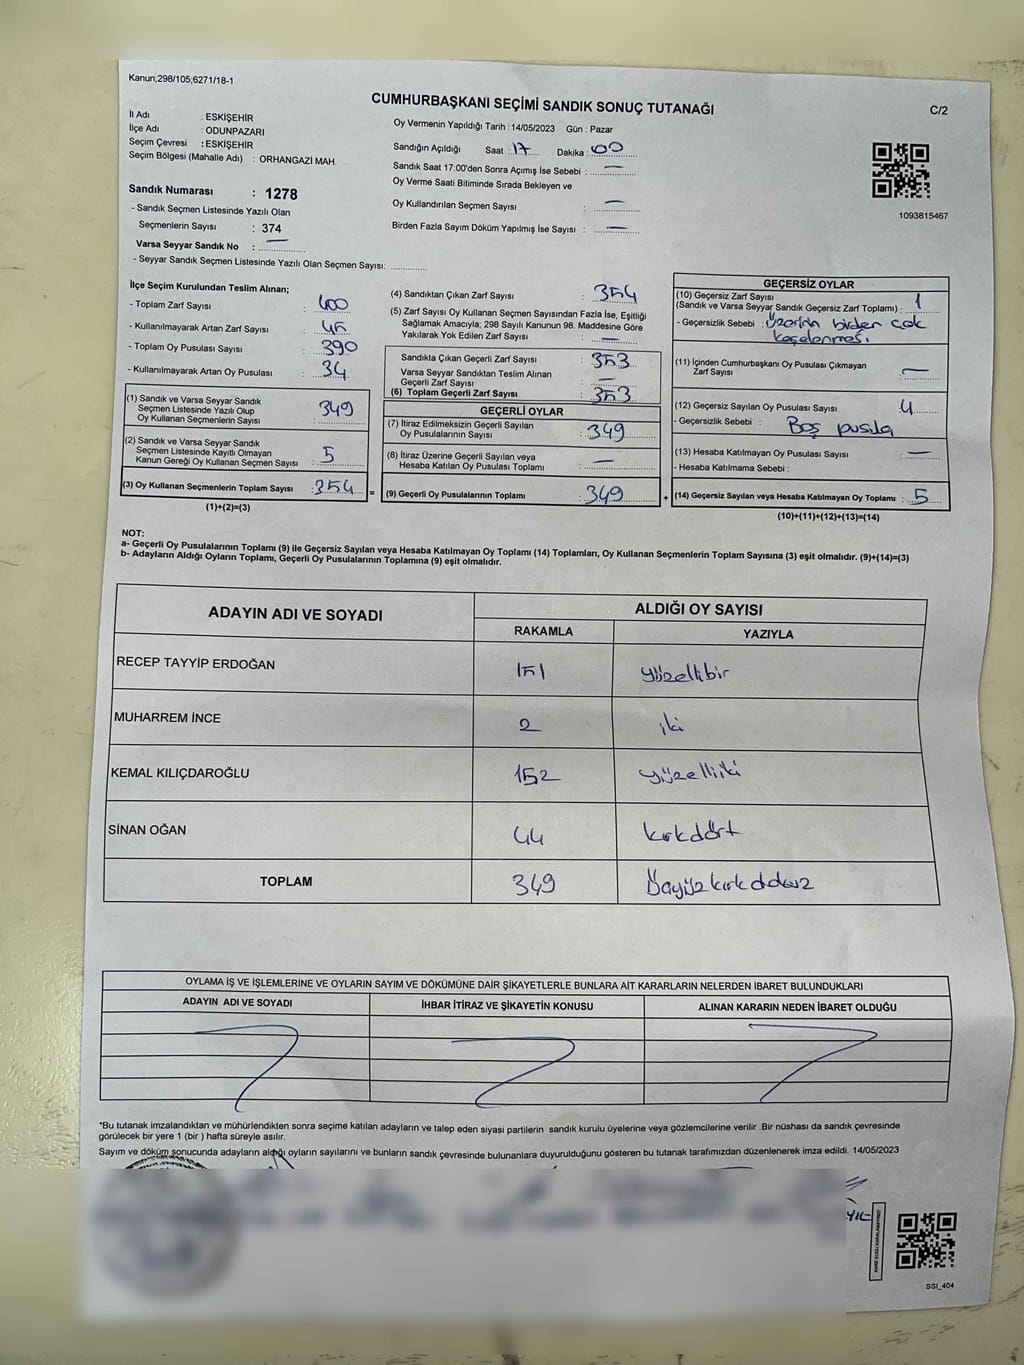 Kanun;298/105;6271/18-1
CUMHURBAŞKANI SEÇİMİ SANDIK SONUÇ TUTANAĞI
C/2
İl Adı : ESKİŞEHİR
İlçe Adı : ODUNPAZARI
Seçim Çevresi : ESKİŞEHİR
Seçim Bölgesi (Mahalle Adı) : ORHANGAZİ MAH.
Oy Vermenin Yapıldığı Tarih : 14/05/2023 Gün : Pazar
Sandığın Açıldığı Saat : 17 Dakika : 00
Sandık Saat 17:00'den Sonra Açımış İse Sebebi : —
Oy Verme Saati Bitiminde Sırada Bekleyen ve
Oy Kullandırılan Seçmen Sayısı : —
Birden Fazla Sayım Döküm Yapılmış İse Sayısı : —
1093815467
Sandık Numarası : 1278
- Sandık Seçmen Listesinde Yazılı Olan
Seçmenlerin Sayısı : 374
Varsa Seyyar Sandık No : —
- Seyyar Sandık Seçmen Listesinde Yazılı Olan Seçmen Sayısı: ..............
İlçe Seçim Kurulundan Teslim Alınan;
- Toplam Zarf Sayısı : 400
- Kullanılmayarak Artan Zarf Sayısı : 45
- Toplam Oy Pusulası Sayısı : 390
- Kullanılmayarak Artan Oy Pusulası : 34
(1) Sandık ve Varsa Seyyar Sandık
Seçmen Listesinde Yazılı Olup
Oy Kullanan Seçmenlerin Sayısı : 349
(2) Sandık ve Varsa Seyyar Sandık
Seçmen Listesinde Kayıtlı Olmayan
Kanun Gereği Oy Kullanan Seçmen Sayısı : 5
(3) Oy Kullanan Seçmenlerin Toplam Sayısı : 354 =
(1)+(2)=(3)
(4) Sandıktan Çıkan Zarf Sayısı : 354
(5) Zarf Sayısı Oy Kullanan Seçmen Sayısından Fazla İse, Eşitliği
Sağlamak Amacıyla; 298 Sayılı Kanunun 98. Maddesine Göre
Yakılarak Yok Edilen Zarf Sayısı : —
Sandıkta Çıkan Geçerli Zarf Sayısı : 353
Varsa Seyyar Sandıktan Teslim Alınan
Geçerli Zarf Sayısı : —
(6) Toplam Geçerli Zarf Sayısı : 353
GEÇERLİ OYLAR
(7) İtiraz Edilmeksizin Geçerli Sayılan
Oy Pusulalarının Sayısı : 349
(8) İtiraz Üzerine Geçerli Sayılan veya
Hesaba Katılan Oy Pusulası Toplamı : —
(9) Geçerli Oy Pusulalarının Toplamı : 349 +
GEÇERSİZ OYLAR
(10) Geçersiz Zarf Sayısı
(Sandık ve Varsa Seyyar Sandık Geçersiz Zarf Toplamı) : 1
- Geçersizlik Sebebi : Üzerinin birden çok
kaşelenmesi.
(11) İçinden Cumhurbaşkanı Oy Pusulası Çıkmayan
Zarf Sayısı : —
(12) Geçersiz Sayılan Oy Pusulası Sayısı : 4
- Geçersizlik Sebebi : Boş pusula
(13) Hesaba Katılmayan Oy Pusulası Sayısı : —
- Hesaba Katılmama Sebebi :
(14) Geçersiz Sayılan veya Hesaba Katılmayan Oy Toplamı : 5
(10)+(11)+(12)+(13)=(14)
NOT:
a- Geçerli Oy Pusulalarının Toplamı (9) ile Geçersiz Sayılan veya Hesaba Katılmayan Oy Toplamı (14) Toplamları, Oy Kullanan Seçmenlerin Toplam Sayısına (3) eşit olmalıdır. (9)+(14)=(3)
b- Adayların Aldığı Oyların Toplamı, Geçerli Oy Pusulalarının Toplamına (9) eşit olmalıdır.
ADAYIN ADI VE SOYADI
ALDIĞI OY SAYISI
RAKAMLA YAZIYLA
RECEP TAYYİP ERDOĞAN 151 yüzellibir
MUHARREM İNCE 2 iki
KEMAL KILIÇDAROĞLU 152 yüzelliiki
SİNAN OĞAN 44 kırkdört
TOPLAM 349 Üçyüzkırkdokuz
OYLAMA İŞ VE İŞLEMLERİNE VE OYLARIN SAYIM VE DÖKÜMÜNE DAİR ŞİKAYETLERLE BUNLARA AİT KARARLARIN NELERDEN İBARET BULUNDUKLARI
ADAYIN ADI VE SOYADI İHBAR İTİRAZ VE ŞİKAYETİN KONUSU ALINAN KARARIN NEDEN İBARET OLDUĞU
*Bu tutanak imzalandıktan ve mühürlendikten sonra seçime katılan adayların ve talep eden siyasi partilerin sandık kurulu üyelerine veya gözlemcilerine verilir .Bir nüshası da sandık çevresinde
görülecek bir yere 1 (bir ) hafta süreyle asılır.
Sayım ve döküm sonucunda adayların aldığı oyların sayılarını ve bunların sandık çevresinde bulunanlara duyurulduğunu gösteren bu tutanak tarafımızdan düzenlenerek imza edildi. 14/05/2023
SSI_404